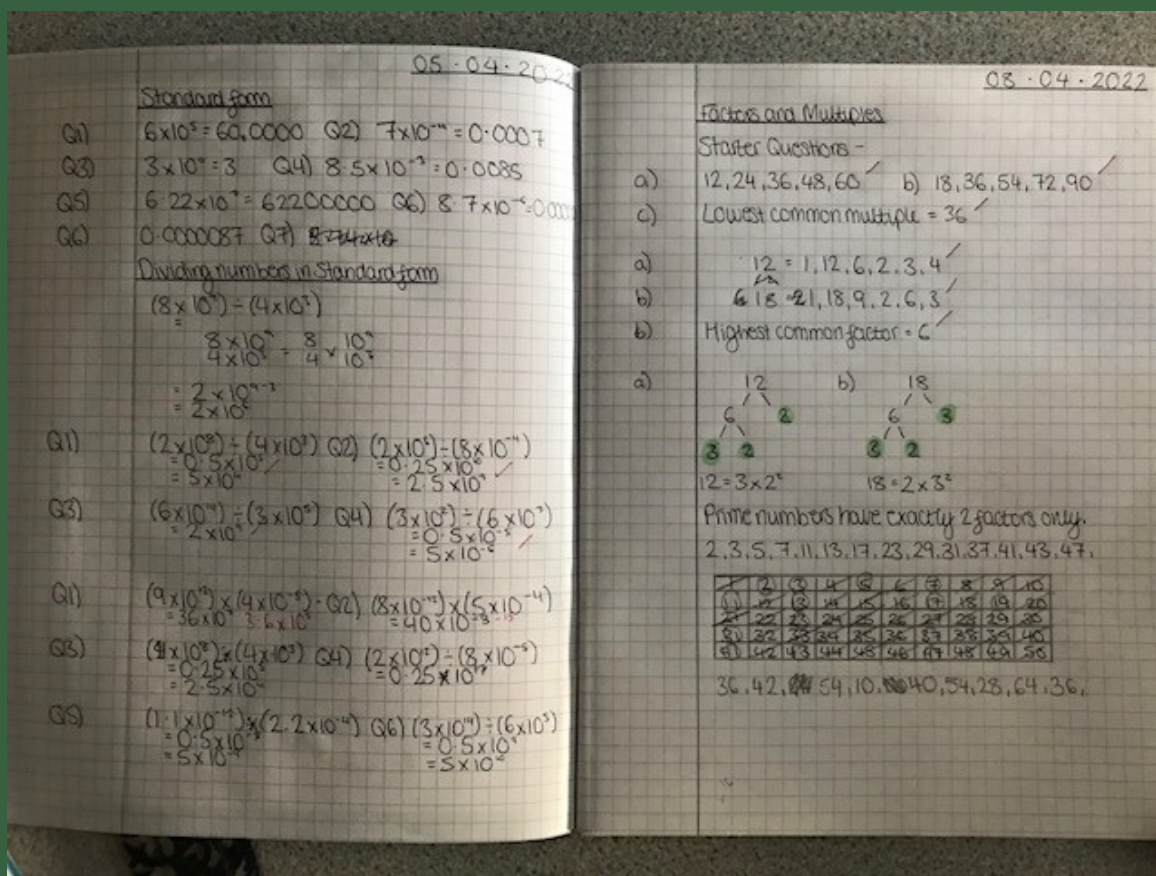 05.04.2022
Standard form
Q1) 6x10⁵ = 60,0000 Q2) 7x10⁻⁴ = 0.0007
Q3) 3x10⁰ = 3 Q4) 8.5x10⁻³ = 0.0085
Q5) 6.22x10⁷ = 62200000 Q6) 8.7x10⁻⁶ = 0.0000
Q6) 0.0000087 Q7)
Dividing numbers in Standard form
(8x10⁹) ÷ (4x10³)
8x10⁹ = 8 x 10⁹
4x10³ 4 10³
= 2x10⁹⁻³
= 2x10⁶
Q1) (2x10⁸) ÷ (4x10³) Q2) (2x10²) ÷ (8x10⁻⁴)
= 0.5x10⁵ = 0.25x10⁶
= 5x10⁴ = 2.5x10⁵
Q3) (6x10) ÷ (3x10⁵) Q4) (3x10²) ÷ (6x10⁷)
= 2x10 = 0.5x10⁻⁵
= 5x10⁻⁶
Q1) (9x10) x (4x10) - Q2) (8x10) x (5x10⁻⁴)
= 36x10 3.6x10 = 40x10
Q3) (1x10⁸) ÷ (4x10³) Q4) (2x10) ÷ (8x10)
= 0.25x10⁵ = 0.25x10
= 2.5x10⁴
Q5) (1.1x10) ÷ (2.2x10⁻⁴) Q6) (3x10) ÷ (6x10⁵)
= 0.5x10 = 0.5x10
= 5x10 = 5x10
08.04.2022
Factors and Multiples
Starter Questions -
a) 12,24,36,48,60 b) 18,36,54,72,90
c) Lowest common multiple = 36
a) 12 = 1,12,6,2,3,4
b) 18 = 1,18,9,2,6,3
b) Highest common factor = 6
a) 12 b) 18
6 2 6 3
3 2 3 2
12 = 3x2² 18 = 2x3²
Prime numbers have exactly 2 factors only.
2,3,5,7,11,13,17,23,29,31,37,41,43,47,
1 2 3 4 5 6 7 8 9 10
11 12 13 14 15 16 17 18 19 20
21 22 23 24 25 26 27 28 29 30
31 32 33 34 35 36 37 38 39 40
41 42 43 44 45 46 47 48 49 50
36,42, 54,10, 40,54,28,64,36,